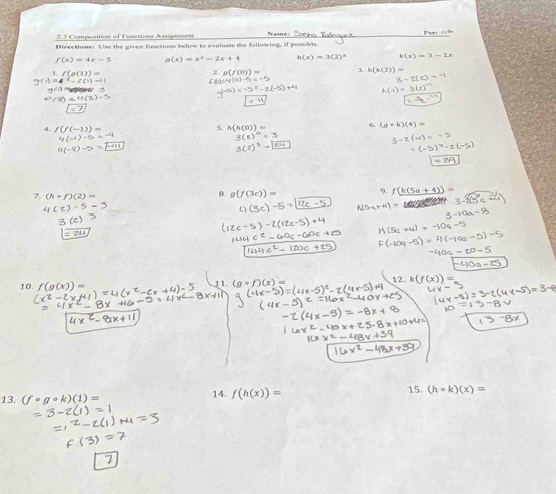 2.7 Composition of Functions Assignment Name: Per:
Directions: Use the given functions below to evaluate the following, if possible.
f(x) = 4x − 5 g(x) = x² − 2x + 4 h(x) = 3(2)ˣ k(x) = 3 − 2x
1. f(g(1)) =
= 4(3)-5
= 7
2. g(f(0)) =
f(0)=4(0)-5 = -5
g(-5) = -5²-2(-5)+4
3. h(k(2)) =
3-2(2) = -1
h(-1) = 3(2)⁻¹
4. f(f(−1)) =
4(-1)-5 = -9
4(-9)-5 =
5. h(h(0)) =
3(2)⁰ = 3
3(2)³ = 24
6. (g ∘ k)(4) =
3-2(4) = -5
= (-5)²-2(-5)
= 39
7. (h ∘ f)(2) =
4(2)-5 = 3
3(2)³
= 24
8. g(f(3c)) =
4(3c)-5 = 12c-5
(12c-5)-2(12c-5)+4
144c²-60c-60c+25
144c²-120c+25
9. f(k(5a + 4)) =
k(5a+4) =
3-10a-8
k(5a+4) = -10a-5
f(-10a-5) = 4(-10a-5)-5
-40a-20-5
-40a-25
10. f(g(x)) =
(x²-2x+4) = 4(x²-2x+4)-5
= 4x²-8x+16-5 = 4x²-8x+11
4x²-8x+11
11. (g ∘ f)(x) =
g(4x-5) = (4x-5)²-2(4x-5)+4
(4x-5)² = 16x²-40x+25
-2(4x-5) = -8x+8
16x²-40x+25-8x+10+4=
16x²-48x+39
16x²-48x+39
12. k(f(x)) =
4x-5
(4x-5) = 3-2(4x-5) = 3-8
10 = 13-8x
13-8x
13. (f ∘ g ∘ k)(1) =
= 3-2(1) = 1
= 1²-2(1)+4 = 3
f(3) = 7
7
14. f(h(x)) =
15. (h ∘ k)(x) =